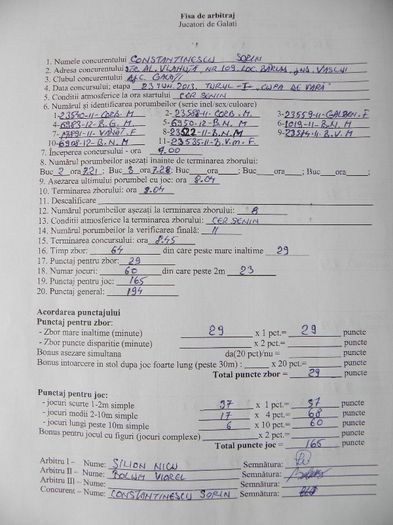 Fisa de arbitraj
Jucatori de Galati
1. Numele concurentului CONSTANTINESCU SORIN
2. Adresa concurentului STR. AL. VLAHUTA NR 109 LOC. BARLAD, JUD. VASLUI
3. Clubul concurentului A.J.C. GALATI
4. Data concursului; etapa 23 IUN. 2013, TURUL-I- "CUPA DE VARA"
5. Conditii atmosferice la ora startului CER SENIN
6. Numărul și identificarea porumbeilor (serie inel/sex/culoare)
1-23570-11-CORB. M 2-23568-11-CORB. M 3-23559-11-GALBEN. F
4-6963-12-B.G. M 5-6950-12-B.N. M 6-1019-11-B.N. M
7-13791-11-VANAT. F 8-23522-11-B.N.M 9-23574-11-B.V.M
10-6908-12-B.N.M 11-23535-11-B.V.m.F
7. Începerea concursului - ora 7.00
8. Numărul porumbeilor așezați înainte de terminarea zborului:
Buc 2 ora 7.21 ; Buc 3 ora 7.28 Buc ora ; Buc ora ; Buc ora ;
9. Asezarea ultimului porumbel cu joc: ora 8.04
10. Terminarea zborului: ora 8.04
11. Descalificare
12. Numărul porumbeilor așezați la terminarea zborului: 8
13. Conditii atmosferice la terminarea zborului: CER SENIN
14. Numărul porumbeilor la verificarea finală: 11
15. Terminarea concursului: ora 8.45
16. Timp zbor: 64 din care peste mare inaltime 29
17. Punctaj pentru zbor: 29
18. Numar jocuri: 60 din care peste 2m 23
19. Punctaj pentru joc: 165
20. Punctaj general: 194
Acordarea punctajului
Punctaj pentru zbor:
- Zbor mare inaltime (minute) 29 x 1 pct.= 29 puncte
- Zbor puncte disparitie (minute) x 2 pct.= puncte
Bonus asezare simultana da(20 pct)/nu = puncte
Bonus intoarcere in stol dupa joc foarte lung (peste 30m) : x 20 pct.= puncte
Total puncte zbor = 29 puncte
Punctaj pentru joc:
- jocuri scurte 1-2m simple 37 x 1 pct.= 37 puncte
- jocuri medii 2-10m simple 17 x 4 pct.= 68 puncte
- jocuri lungi peste 10m simple 6 x 10 pct.= 60 puncte
Bonus pentru jocul cu figuri (jocuri complexe) x 2 pct.= puncte
Total puncte joc = 165 puncte
Arbitru I – Nume: SILION NICU Semnătura:
Arbitru II – Nume: VIOREL Semnătura:
Arbitru III – Nume: Semnătura:
Concurent – Nume: CONSTANTINESCU SORIN Semnătura: